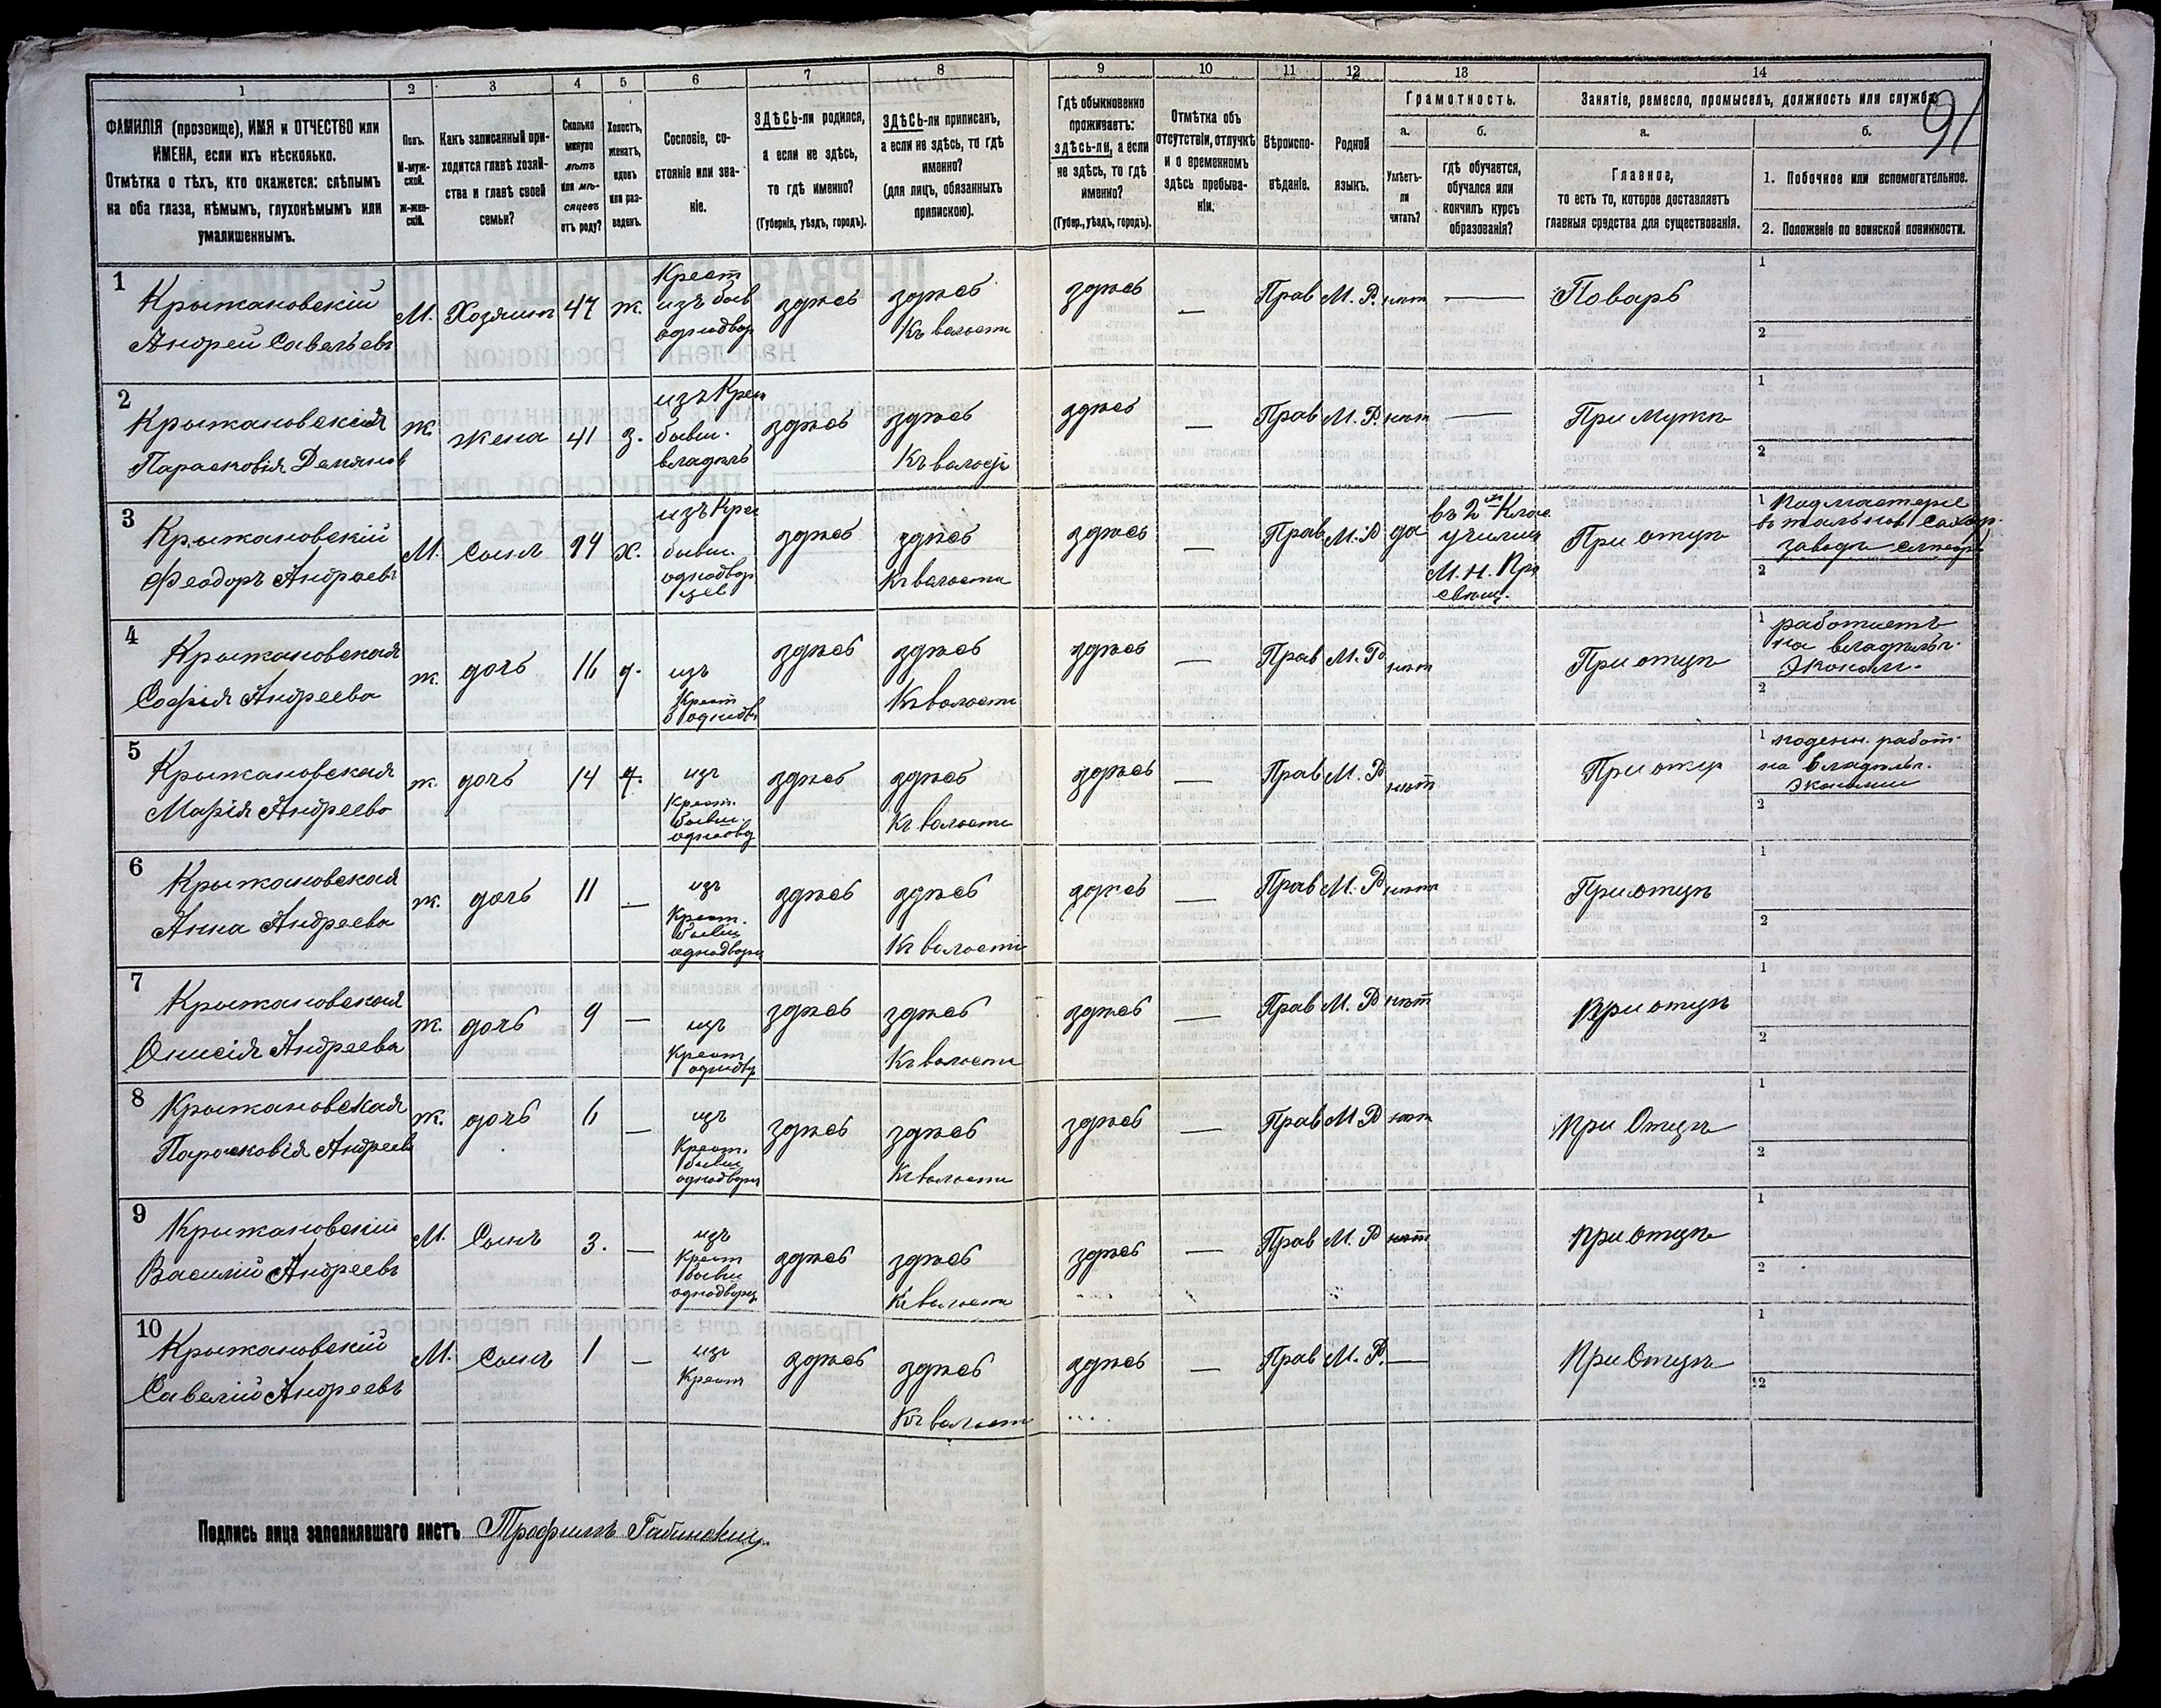 1 2 3 4 5 6 7 8 9 10 11 12 13 14
91
ФАМИЛІЯ (прозвище), ИМЯ и ОТЧЕСТВО или
ИМЕНА, если ихъ нѣсколько.
Отмѣтка о тѣхъ, кто окажется: слѣпымъ
на оба глаза, нѣмымъ, глухонѣмымъ или
умалишеннымъ.
Полъ.
М-муж-
ской.
ж-жен-
скій.
Какъ записанный при-
ходится главѣ хозяй-
ства и главѣ своей
семьи?
Сколько
минуло
лѣтъ
или мѣ-
сяцевъ
отъ роду?
Холостъ,
женатъ,
вдовъ
или раз-
веденъ.
Сословіе, со-
стояніе или зва-
ніе.
ЗДѢСЬ-ли родился,
а если не здѣсь,
то гдѣ именно?
(Губернія, уѣздъ, городъ).
ЗДѢСЬ-ли приписанъ,
а если не здѣсь, то гдѣ
именно?
(для лицъ, обязанныхъ
припискою).
Гдѣ обыкновенно
проживаетъ:
ЗДѢСЬ-ЛИ, а если
не здѣсь, то гдѣ
именно?
(Губер., уѣздъ, городъ).
Отмѣтка объ
отсутствіи, отлучкѣ
и о временномъ
здѣсь пребыва-
ніи.
Вѣроиспо-
вѣданіе.
Родной
языкъ.
Грамотность.
а.
Умѣетъ-
ли
читать?
б.
гдѣ обучается,
обучался или
кончилъ курсъ
образованія?
Занятіе, ремесло, промыселъ, должность или служба.
а.
Главное,
то есть то, которое доставляетъ
главныя средства для существованія.
б.
1. Побочное или вспомогательное.
2. Положеніе по воинской повинности.
1 Крыжановскій
Андрей Савельевъ
М. Хозяинъ 47 ж.
Крест
изъ быв
однодвор
здѣсь здѣсь
Къ волости
здѣсь — Прав М. Р. нѣтъ — Поваръ
1
2
2 Крыжановскія
Парасковія Демянов
ж. жена 41 з.
изъ Крес
бывш.
владѣлъ
здѣсь здѣсь
Къ волос
здѣсь — Прав М. Р. нѣт — При мужѣ
1
2
3 Крыжановскій
Феодоръ Андреевъ
М. Сынъ х.
изъ Крес
бывш.
однодвор
цев
здѣсь здѣсь
Къ волости
здѣсь — Прав М. Р да
въ 2 Клас
училищ
М. Н. Пр
При отцѣ
1 Подмастерье
заводъ
2
4 Крыжановская
Софія Андреева
ж. дочь 16 д.
изъ
Крест
б однодв
здѣсь здѣсь
Къ волости
здѣсь — Прав М. Р нѣт При отцѣ
1 работаетъ
на владѣльч.
Эконом.
2
5 Крыжановская
Марія Андреева
ж. дочь 14 д.
изъ
Крест.
бывш
однодв
здѣсь здѣсь
Къ волости
здѣсь — Прав М. Р нѣт При отцѣ
1 поденн. работ
на владѣльч.
Экономии
2
6 Крыжановская
Анна Андреева
ж. дочь 11 —
изъ
Крест.
бывш
однодворц
здѣсь здѣсь
Къ волости
здѣсь — Прав М. Р нѣт При отцѣ
1
2
7 Крыжановская
Онисія Андреева
ж. дочь 9 —
изъ
Крест
однодв
здѣсь здѣсь
Къ волости
здѣсь — Прав М. Р нѣт При отцѣ
1
2
8 Крыжановская
Парасковія Андреев
ж. дочь 6 —
изъ
Крест.
бывш
однодворц
здѣсь здѣсь
Къ волости
здѣсь — Прав М Р нѣт При Отцѣ
1
2
9 Крыжановскій
Василій Андреевъ
М. Сынъ 3. —
изъ
Крест
бывш
однодворц
здѣсь здѣсь
Къ волости
здѣсь — Прав М. Р нѣт При Отцѣ
1
2
10 Крыжановскій
Савелій Андреевъ
М. Сынъ 1 —
изъ
Крест
здѣсь здѣсь
Къ волост
здѣсь — Прав М. Р. — При Отцѣ
1
2
Подпись лица заполнявшаго листъ Трофимъ